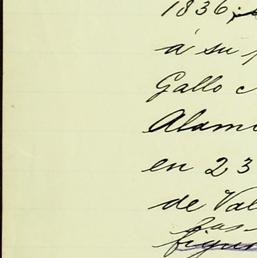 1836,
á su
Gallo
Alam
en 23
de Val
figur